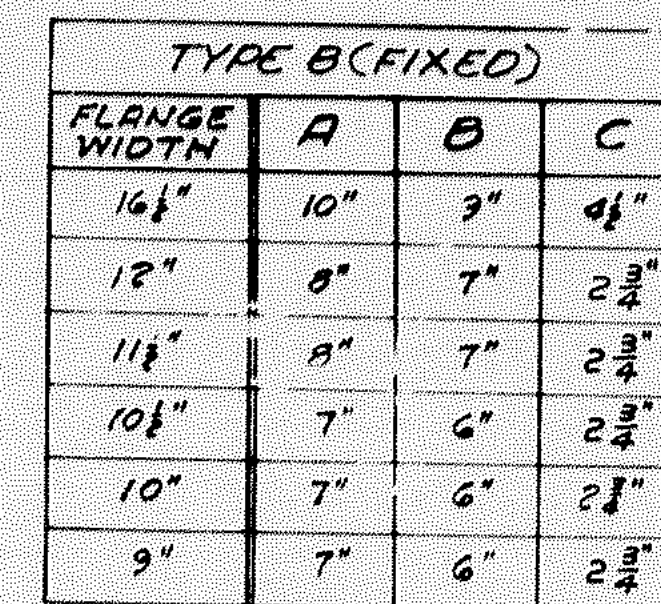 TYPE B (FIXED)
FLANGE WIDTH A B C
16½" 10" 9" 4½"
12" 8" 7" 2 3/4"
11½" 8" 7" 2 3/4"
10½" 7" 6" 2 3/4"
10" 7" 6"
9" 7" 6" 2 3/4"